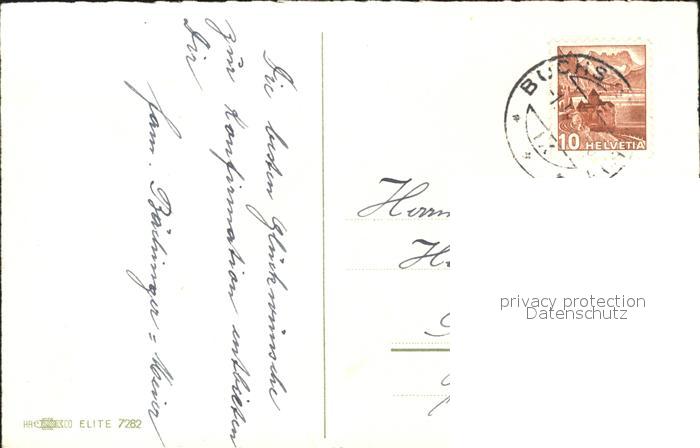 Die besten Glückwünsche
zur Konfirmation entbieten
Dir
fam. Bächinger = Meier
Herrn
H
BUCHS
10 HELVETIA
privacy protection
Datenschutz
ELITE 7282